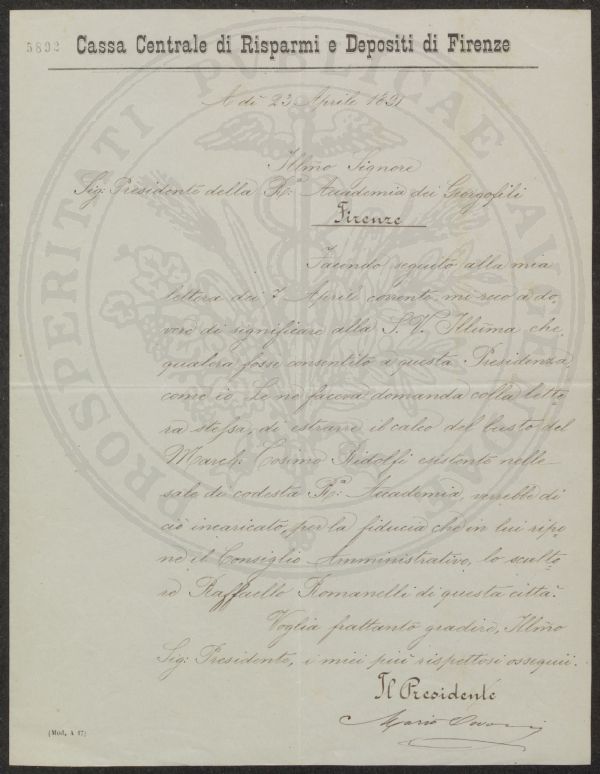 5892 Cassa Centrale di Risparmi e Depositi di Firenze
PROSPERITATI PUBLICAE AUGENDAE
A dì 23 Aprile 1891
Illmo Signore
Sig: Presidente della Rª: Accademia dei Georgofili
Firenze
Facendo seguito alla mia
lettera dei 7 Aprile corrente, mi reco a do-
vere di significare alla S. V. Illuma che,
qualora fosse consentito a questa Presidenza,
come io Le ne faceva domanda colla lette-
ra stessa, di estrarre il calco del busto del
March: Cosimo Ridolfi esistente nelle
sale di codesta Rª: Accademia, verrebbe di
ciò incaricato, per la fiducia che in lui ripo-
ne il Consiglio Amministrativo, lo sculto-
re Raffaello Romanelli di questa città.
Voglia frattanto gradire, Illmo
Sig: Presidente, i miei più rispettosi ossequii.
Il Presidente
Mario
(Mod. A 17)